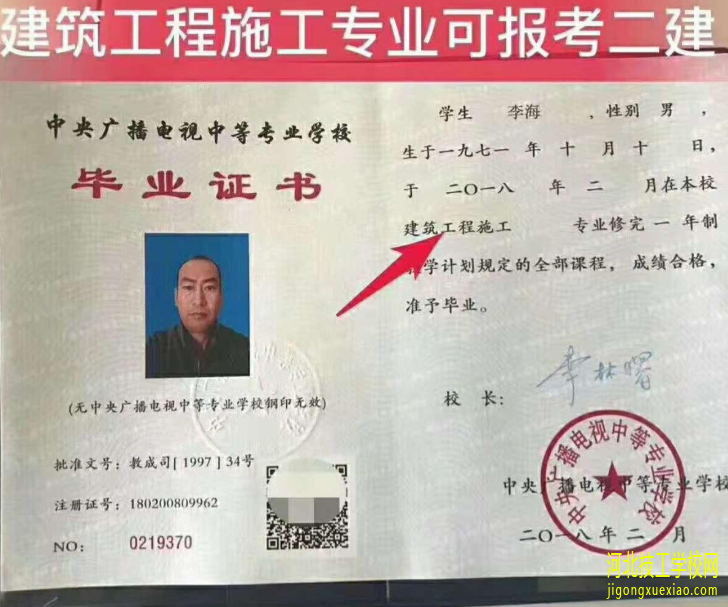 建筑工程施工专业可报考二建
中央广播电视中等专业学校
毕业证书
(无中央广播电视中等专业学校钢印无效)
批准文号：教成司[1997]34号
注册证号：180200809962
NO： 0219370
学生 李海 ，性别 男 ，
生于一九七一 年 十 月 十 日，
于 二〇一八 年 二 月在本校
建筑工程施工 专业修完 一 年制
学计划规定的全部课程，成绩合格，
准予毕业。
校 长：
中央广播电视中等专业学校
中央广播电视中等专业学校
二〇一八 年 二 月
河北技工学校网
jigongxuexiao.com